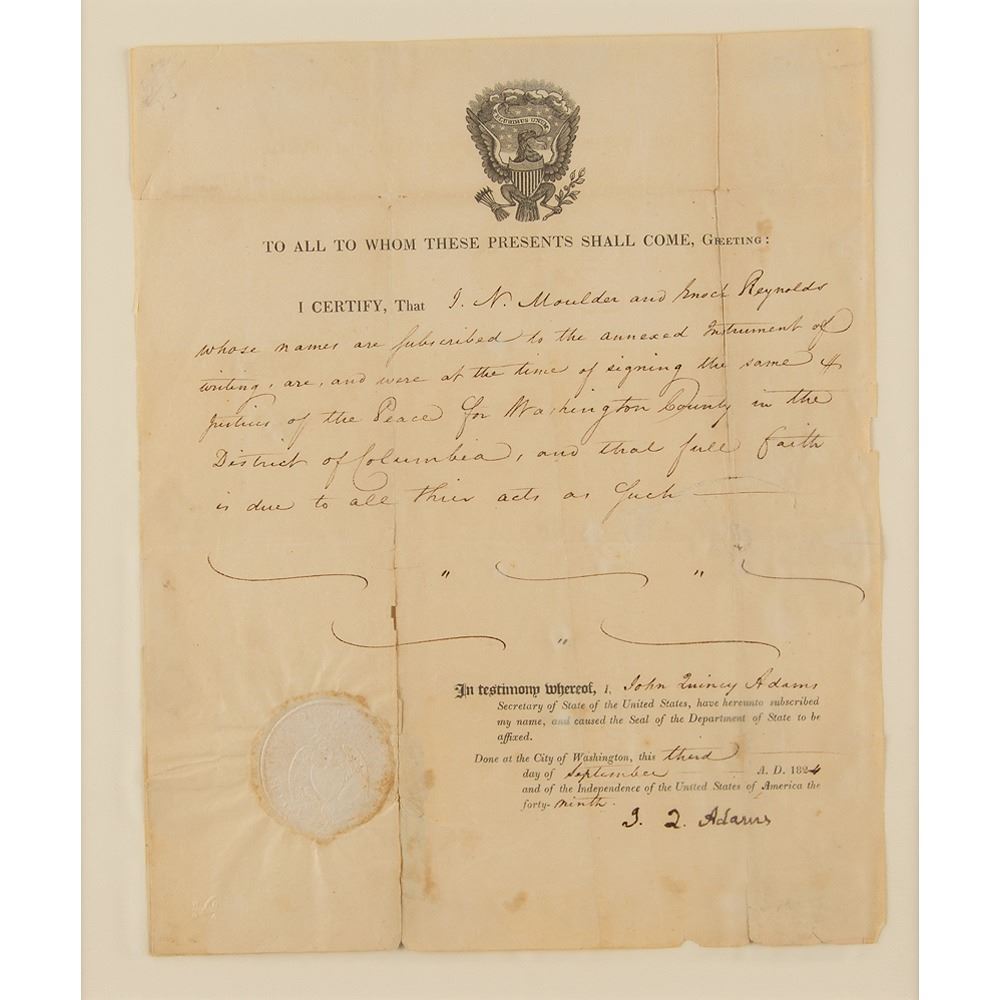 E PLURIBUS UNUM
TO ALL TO WHOM THESE PRESENTS SHALL COME, GREETING:
I CERTIFY, That J. N. Moulder and Enoch Reynolds
whose names are subscribed to the annexed Instrument of
writing, are, and were at the time of signing the same
Justices of the Peace for Washington County in the
District of Columbia, and that full faith
is due to all their acts as such
" "
"
In testimony whereof, I, John Quincy Adams
Secretary of State of the United States, have hereunto subscribed
my name, and caused the Seal of the Department of State to be
affixed.
Done at the City of Washington, this third
day of September A. D. 1824
and of the Independence of the United States of America the
forty-ninth.
J. Q. Adams